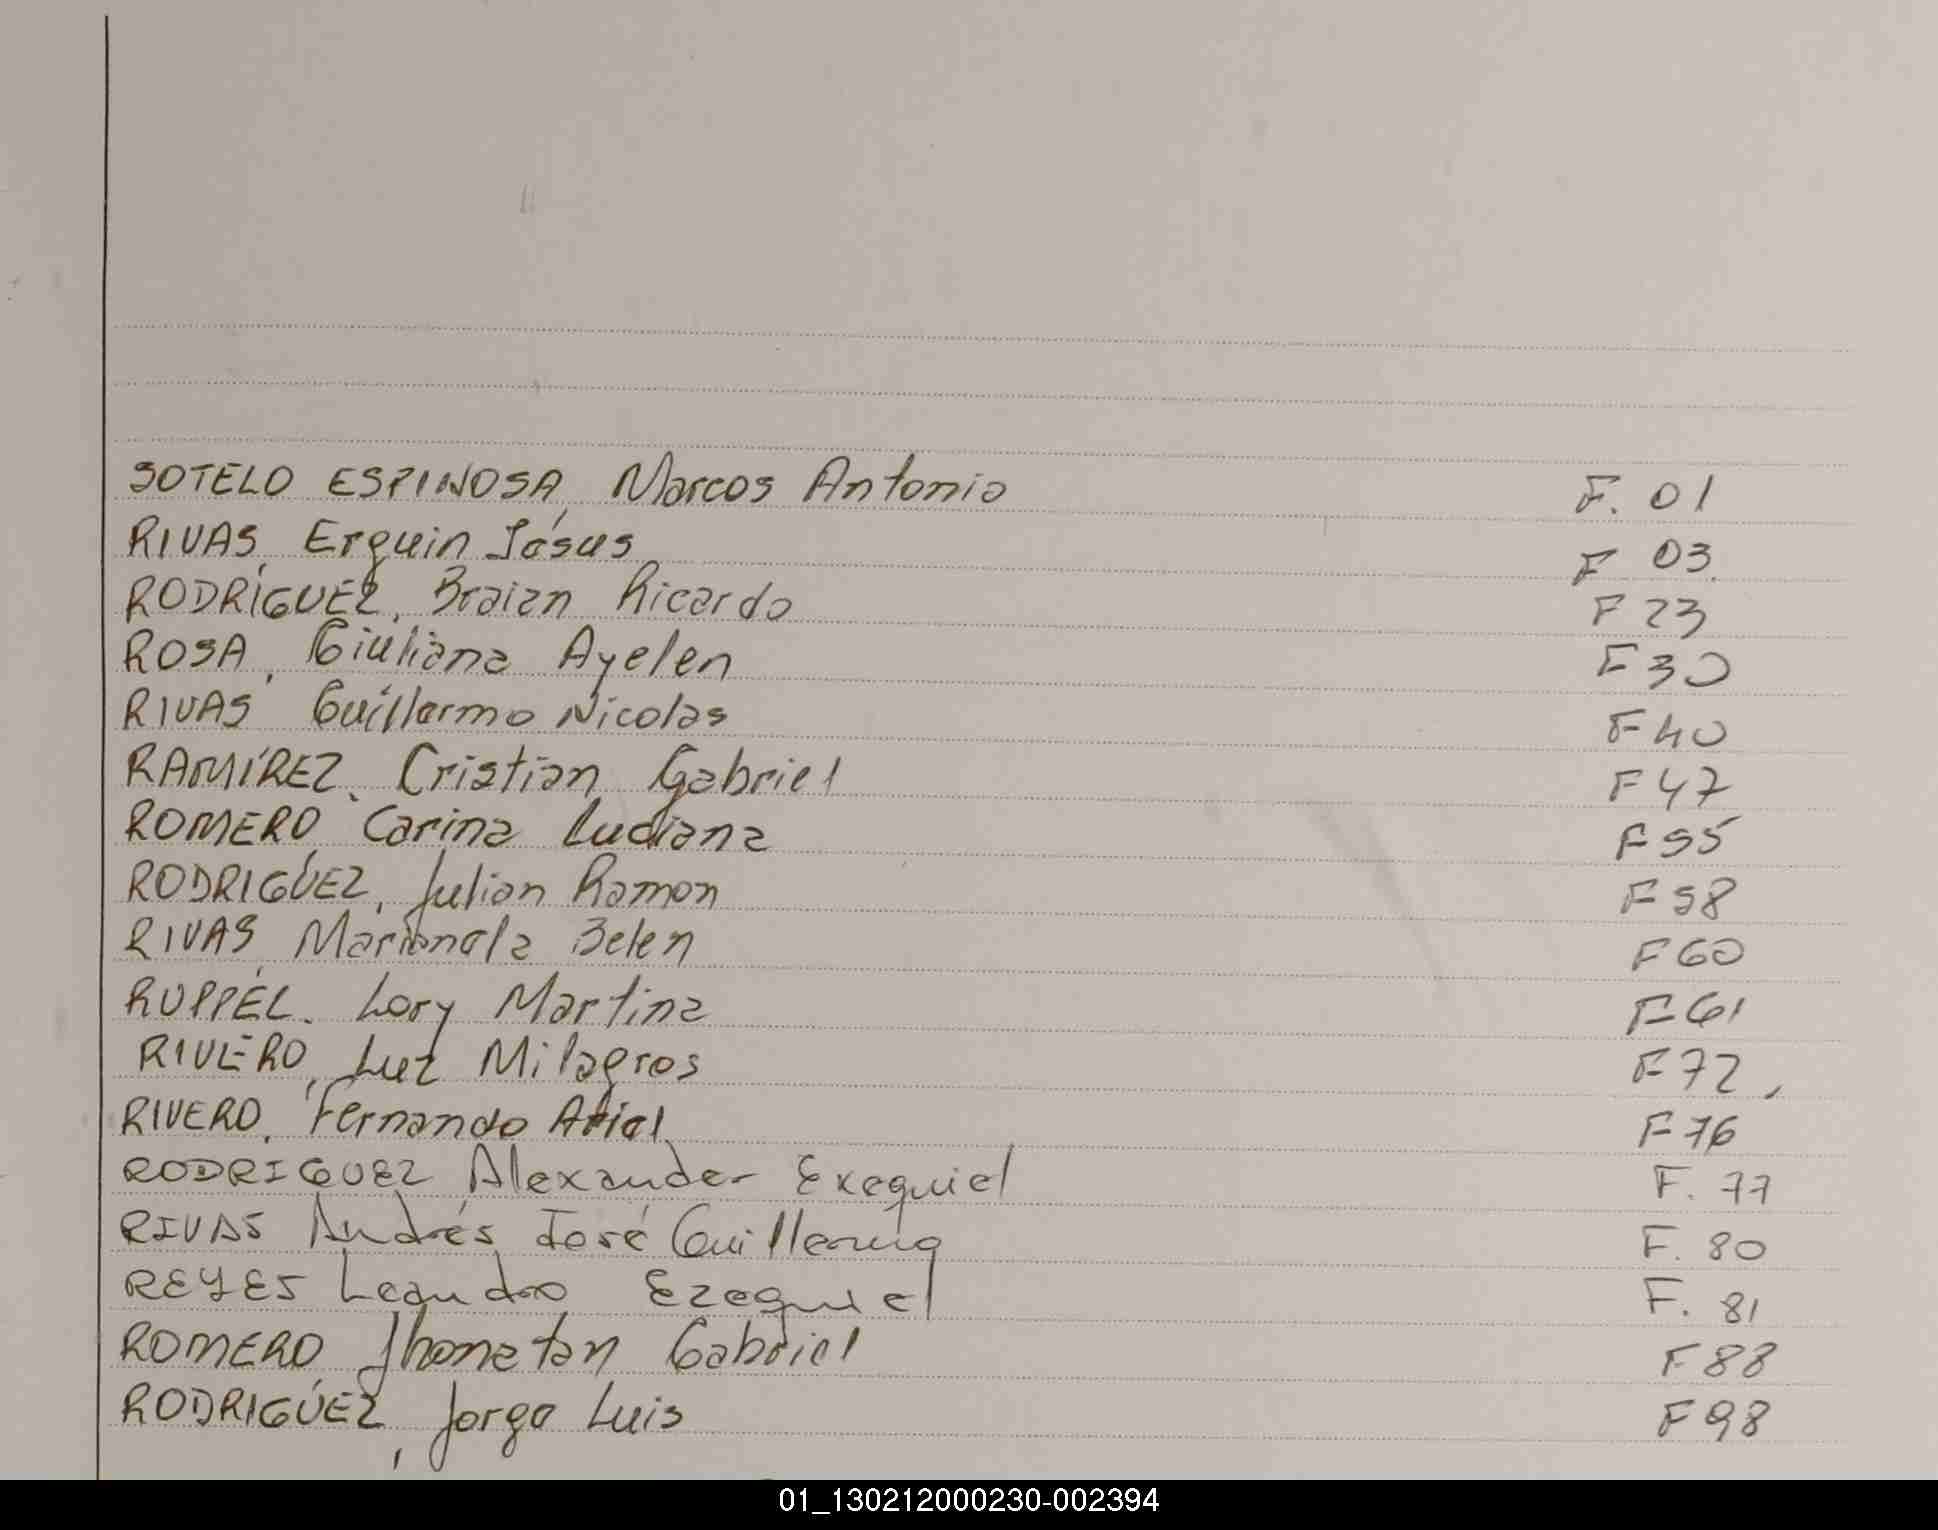 SOTELO ESPINOSA, Marcos Antonio F. 01
RIVAS, Erguin Jésus F 03.
RODRÍGUEZ, Braian Ricardo F 23
ROSA, Giuliana Ayelen F 30
RIVAS Guillermo Nicolas F 40
RAMÍREZ, Cristian Gabriel F 47
ROMERO, Carina Luciana F 55
RODRIGÚEZ, Julian Ramon F 58
RIVAS, Marianela Belen F 60
RUPPEL. Lory Martina F 61
RIVERO, Luz Milagros F 72,
RIVERO, Fernando Ariel F 76
RODRIGUEZ Alexander Exequiel F. 77
RIVAS Andrés José Guillermo F. 80
REYES Leandro Ezequiel F. 81
ROMERO, Jhonatan Gabriel F 88
RODRIGÚEZ, Jorge Luis F 98
01_130212000230-002394